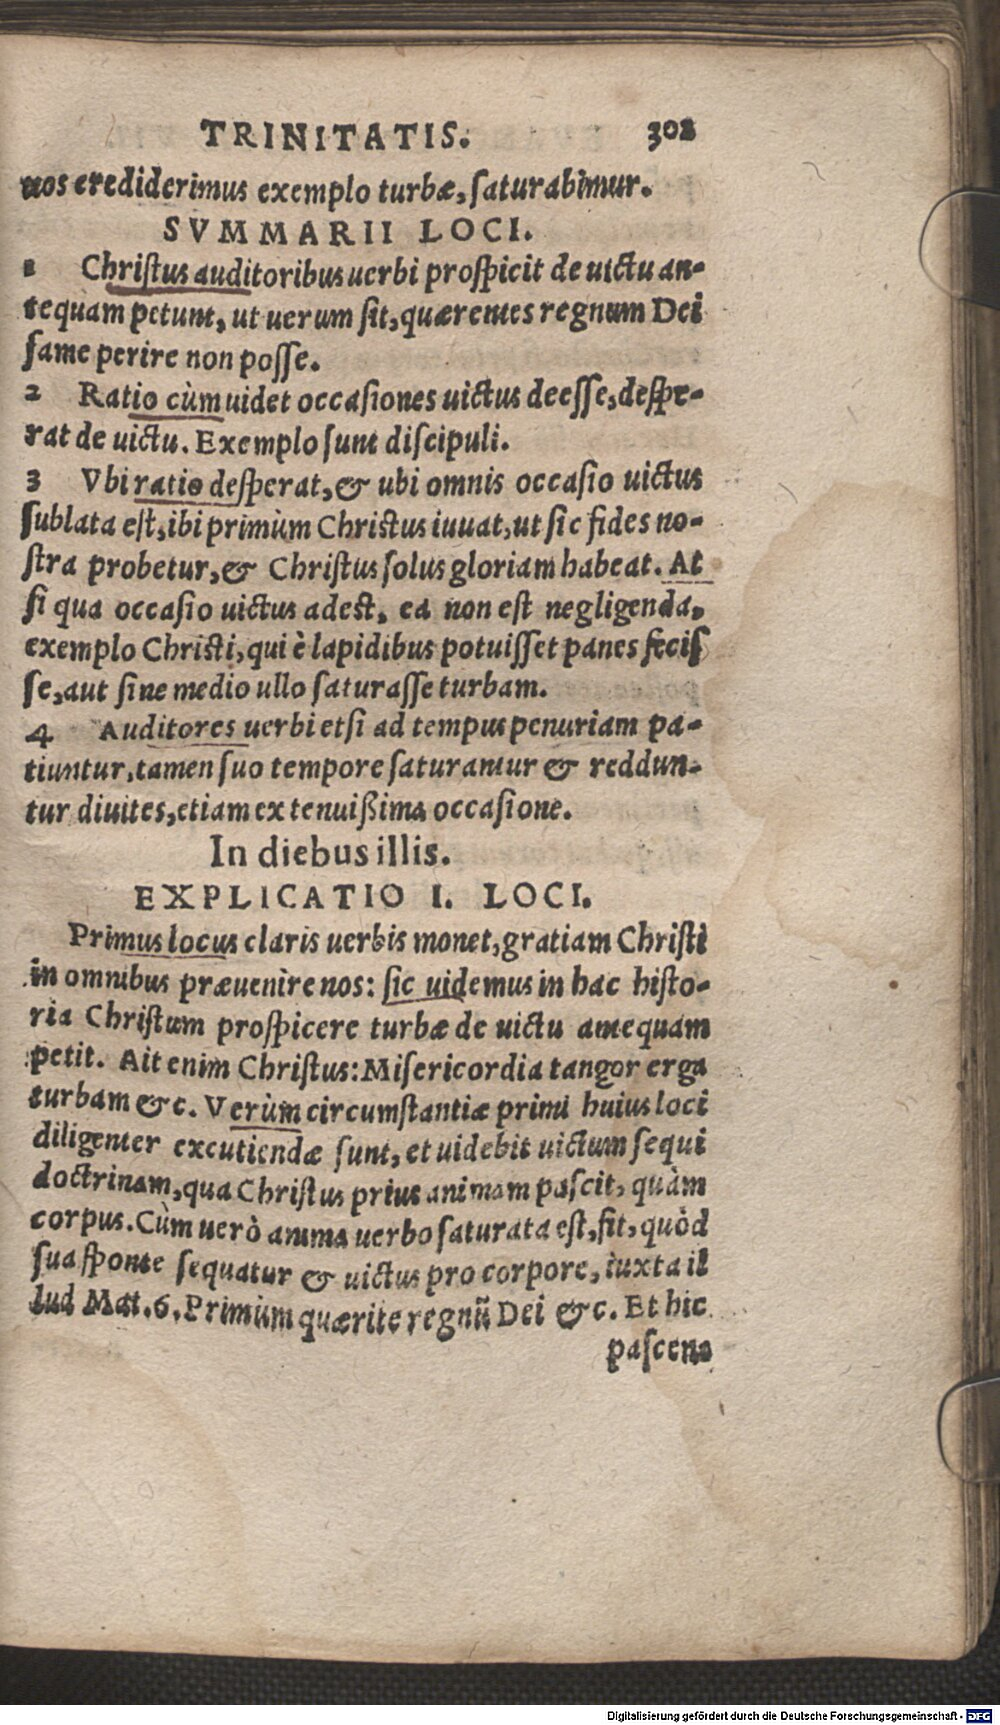 TRINITATIS. 302
nos crediderimus exemplo turbæ, saturabimur.
SVMMARII LOCI.
1 Christus auditoribus uerbi prospicit de uictu an-
tequam petunt, ut uerum sit, quærentes regnum Dei
fame perire non posse.
2 Ratio cùm uidet occasiones uictus deesse, despe-
rat de uictu. Exemplo sunt discipuli.
3 Vbi ratio desperat, & ubi omnis occasio uictus
sublata est, ibi primùm Christus iuuat, ut sic fides no-
stra probetur, & Christus solus gloriam habeat. At
si qua occasio uictus adest, ea non est negligenda,
exemplo Christi, qui è lapidibus potuisset panes fecis
se, aut sine medio ullo saturasse turbam.
4 Auditores uerbi etsi ad tempus penuriam pa-
tiuntur, tamen suo tempore saturantur & reddun-
tur diuites, etiam ex tenuißima occasione.
In diebus illis.
EXPLICATIO I. LOCI.
Primus locus claris uerbis monet, gratiam Christi
in omnibus præuenire nos: sic uidemus in hac histo-
ria Christum prospicere turbæ de uictu antequam
petit. Ait enim Christus: Misericordia tangor erga
turbam &c. Verùm circumstantiæ primi huius loci
diligenter excutiendæ sunt, et uidebis uictum sequi
doctrinam, qua Christus prius animam pascit, quàm
corpus. Cùm uerò anima uerbo saturata est, fit, quòd
sua sponte sequatur & uictus pro corpore, iuxta il
lud Mat. 6. Primùm quærite regnũ Dei &c. Et hic
pascens
Digitalisierung gefördert durch die Deutsche Forschungsgemeinschaft - DFG